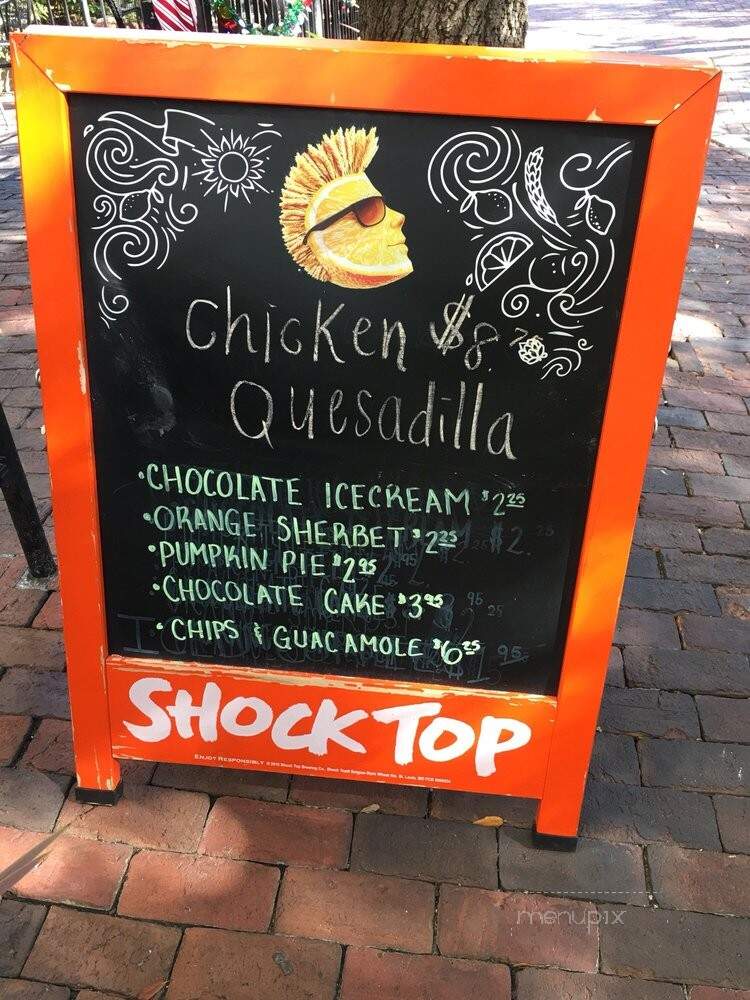 Chicken $8.75
Quesadilla
•CHOCOLATE ICECREAM $2.25
•ORANGE SHERBET $2.25
•PUMPKIN PIE $2.95
•CHOCOLATE CAKE $3.95
•CHIPS & GUACAMOLE $6.25
SHOCK TOP
ENJOY RESPONSIBLY
menupix